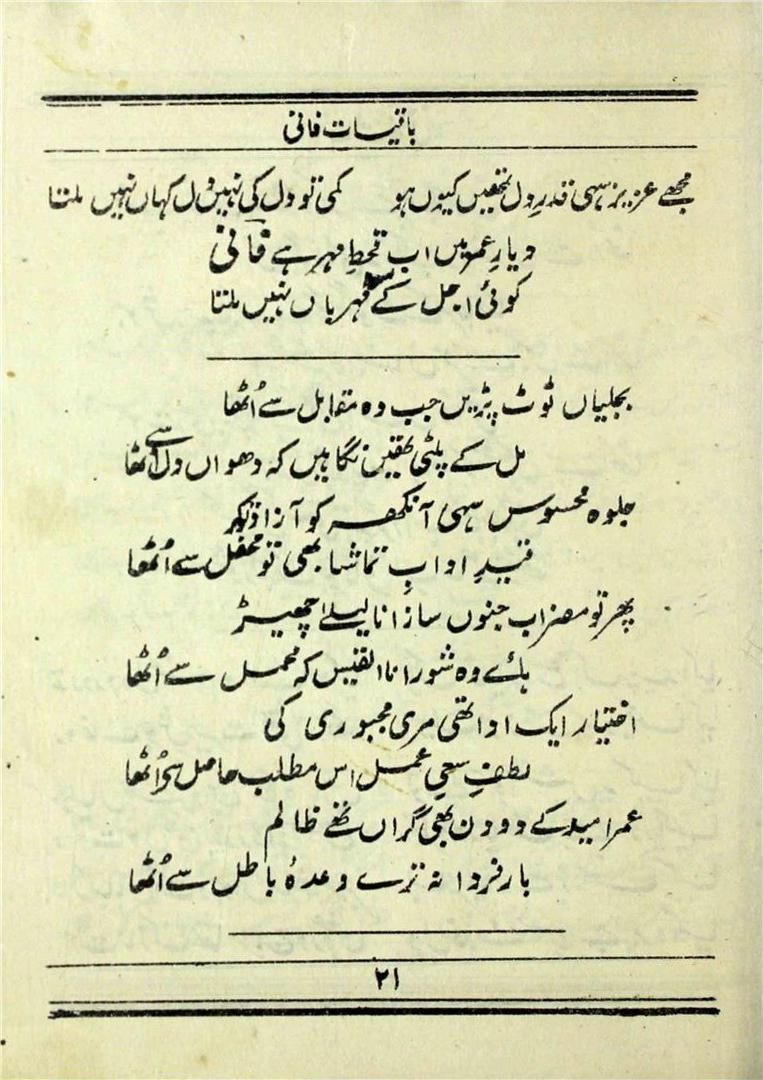 باقیات فانی
مجھے عزیز سہی قدرِ دل تمھیں کیوں ہو کمی تو دل کی نہیں دل کہاں نہیں ملتا
دیارِ عمر میں اب قحطِ مہر ہے فانیؔ
کوئی اجل کے سوا مہرباں نہیں ملتا
بجلیاں ٹوٹ پڑیں جب وہ مقابل سے اُٹھا
مل کے پلٹی تھیں نگاہیں کہ دھواں دل سے اُٹھا
جلوہ محسوس سہی آنکھ کو آزاد تو کر
قیدِ آدابِ تماشا بھی تو محفل سے اُٹھا
پھر تو مضراب جنوں ساز انا لیلےٰ چھیڑ
ہائے وہ شور انا القیس کہ محمل سے اُٹھا
اختیار ایک ادا تھی مری مجبوری کی
لطفِ سعیِ عمل اس مطلب حاصل سے اُٹھا
عمر امید کے دو دن بھی گراں تھے ظالم
بار فردا نہ ترے وعدۂ باطل سے اُٹھا
۲۱